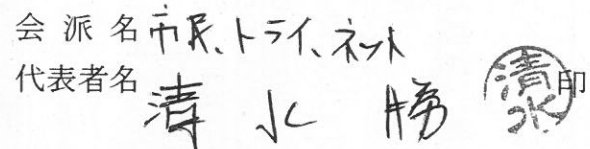 会派名 市民、トライ、ネット
代表者名 清水 勝 清水 印